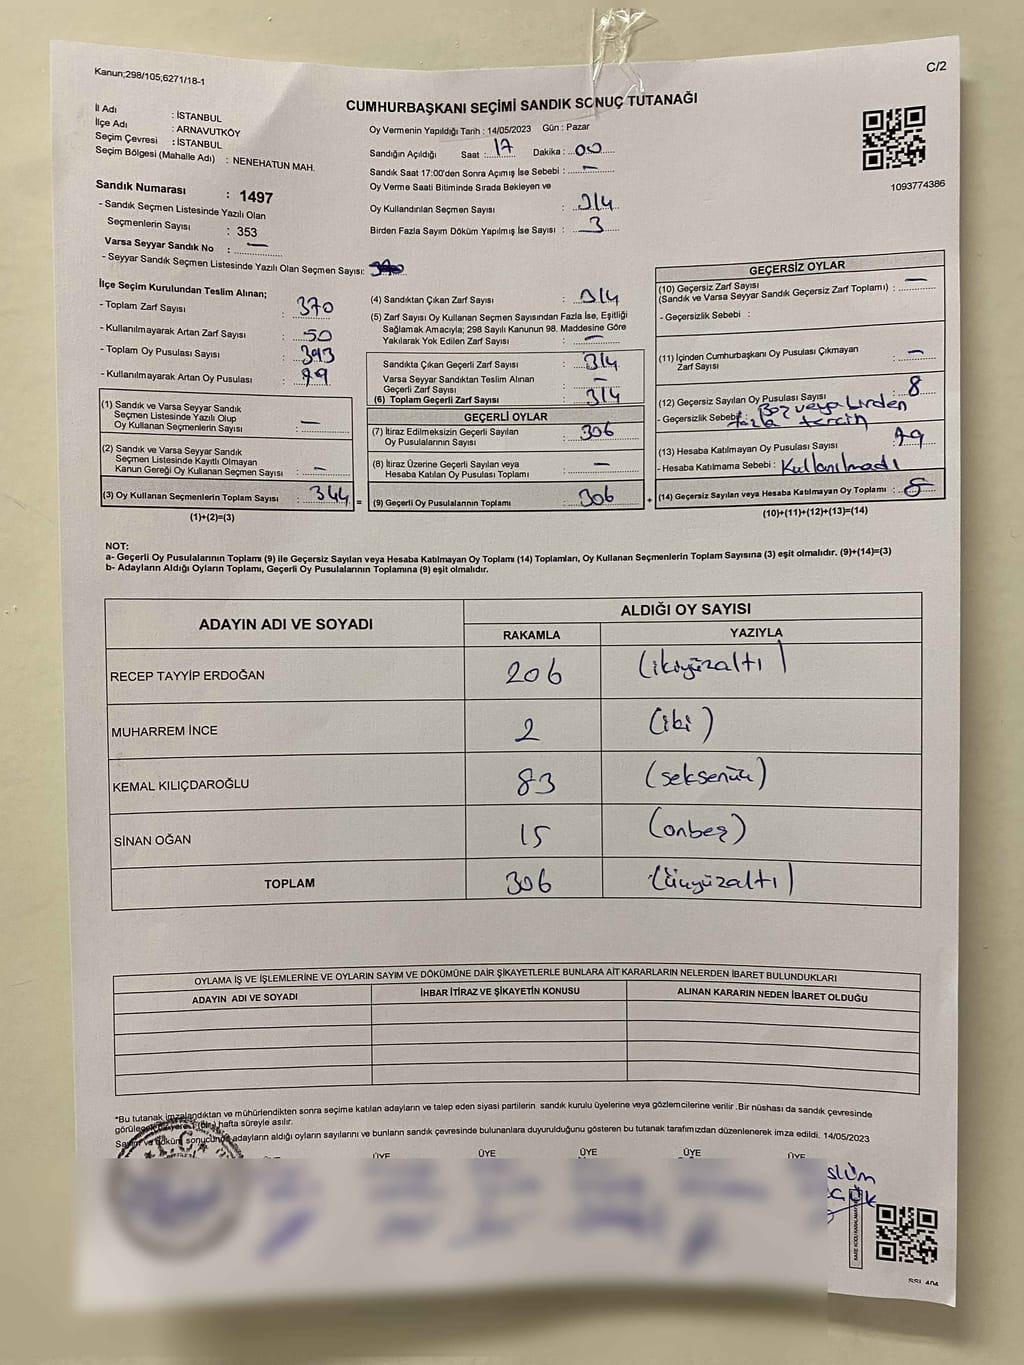 Kanun;298/105,6271/18-1
C/2
CUMHURBAŞKANI SEÇİMİ SANDIK SONUÇ TUTANAĞI
İl Adı : İSTANBUL
İlçe Adı : ARNAVUTKÖY
Seçim Çevresi : İSTANBUL
Seçim Bölgesi (Mahalle Adı) : NENEHATUN MAH.
Oy Vermenin Yapıldığı Tarih : 14/05/2023 Gün : Pazar
Sandığın Açıldığı Saat : 17 Dakika : 00
Sandık Saat 17:00'den Sonra Açımış İse Sebebi : —
Oy Verme Saati Bitiminde Sırada Bekleyen ve
Oy Kullandırılan Seçmen Sayısı : 314
Birden Fazla Sayım Döküm Yapılmış İse Sayısı : 3
1093774386
Sandık Numarası : 1497
- Sandık Seçmen Listesinde Yazılı Olan
Seçmenlerin Sayısı : 353
Varsa Seyyar Sandık No : —
- Seyyar Sandık Seçmen Listesinde Yazılı Olan Seçmen Sayısı:
İlçe Seçim Kurulundan Teslim Alınan;
- Toplam Zarf Sayısı : 370
- Kullanılmayarak Artan Zarf Sayısı : 50
- Toplam Oy Pusulası Sayısı : 393
- Kullanılmayarak Artan Oy Pusulası : 79
(1) Sandık ve Varsa Seyyar Sandık
Seçmen Listesinde Yazılı Olup
Oy Kullanan Seçmenlerin Sayısı : —
(2) Sandık ve Varsa Seyyar Sandık
Seçmen Listesinde Kayıtlı Olmayan
Kanun Gereği Oy Kullanan Seçmen Sayısı : —
(3) Oy Kullanan Seçmenlerin Toplam Sayısı : 344 =
(1)+(2)=(3)
(4) Sandıktan Çıkan Zarf Sayısı : 314
(5) Zarf Sayısı Oy Kullanan Seçmen Sayısından Fazla İse, Eşitliği
Sağlamak Amacıyla; 298 Sayılı Kanunun 98. Maddesine Göre
Yakılarak Yok Edilen Zarf Sayısı : —
Sandıkta Çıkan Geçerli Zarf Sayısı : 314
Varsa Seyyar Sandıktan Teslim Alınan
Geçerli Zarf Sayısı : —
(6) Toplam Geçerli Zarf Sayısı : 314
GEÇERLİ OYLAR
(7) İtiraz Edilmeksizin Geçerli Sayılan
Oy Pusulalarının Sayısı : 306
(8) İtiraz Üzerine Geçerli Sayılan veya
Hesaba Katılan Oy Pusulası Toplamı : —
(9) Geçerli Oy Pusulalarının Toplamı : 306 +
GEÇERSİZ OYLAR
(10) Geçersiz Zarf Sayısı
(Sandık ve Varsa Seyyar Sandık Geçersiz Zarf Toplamı) : —
- Geçersizlik Sebebi :
(11) İçinden Cumhurbaşkanı Oy Pusulası Çıkmayan
Zarf Sayısı : —
(12) Geçersiz Sayılan Oy Pusulası Sayısı : 8
- Geçersizlik Sebebi : Boz veya birden
fazla tercih
(13) Hesaba Katılmayan Oy Pusulası Sayısı 79
- Hesaba Katılmama Sebebi : Kullanılmadı
(14) Geçersiz Sayılan veya Hesaba Katılmayan Oy Toplamı : 8
(10)+(11)+(12)+(13)=(14)
NOT:
a- Geçerli Oy Pusulalarının Toplamı (9) ile Geçersiz Sayılan veya Hesaba Katılmayan Oy Toplamı (14) Toplamları, Oy Kullanan Seçmenlerin Toplam Sayısına (3) eşit olmalıdır. (9)+(14)=(3)
b- Adayların Aldığı Oyların Toplamı, Geçerli Oy Pusulalarının Toplamına (9) eşit olmalıdır.
ADAYIN ADI VE SOYADI ALDIĞI OY SAYISI
RAKAMLA YAZIYLA
RECEP TAYYİP ERDOĞAN 206 (ikiyüzaltı)
MUHARREM İNCE 2 (iki)
KEMAL KILIÇDAROĞLU 83 (seksenüç)
SİNAN OĞAN 15 (onbeş)
TOPLAM 306 (üçyüzaltı)
OYLAMA İŞ VE İŞLEMLERİNE VE OYLARIN SAYIM VE DÖKÜMÜNE DAİR ŞİKAYETLERLE BUNLARA AİT KARARLARIN NELERDEN İBARET BULUNDUKLARI
ADAYIN ADI VE SOYADI İHBAR İTİRAZ VE ŞİKAYETİN KONUSU ALINAN KARARIN NEDEN İBARET OLDUĞU
*Bu tutanak imzalandıktan ve mühürlendikten sonra seçime katılan adayların ve talep eden siyasi partilerin sandık kurulu üyelerine veya gözlemcilerine verilir .Bir nüshası da sandık çevresinde
(bir) hafta süreyle asılır.
döküm sonucunda adayların aldığı oyların sayılarını ve bunların sandık çevresinde bulunanlara duyurulduğunu gösteren bu tutanak tarafımızdan düzenlenerek imza edildi. 14/05/2023
ÜYE ÜYE ÜYE ÜYE ÜYE